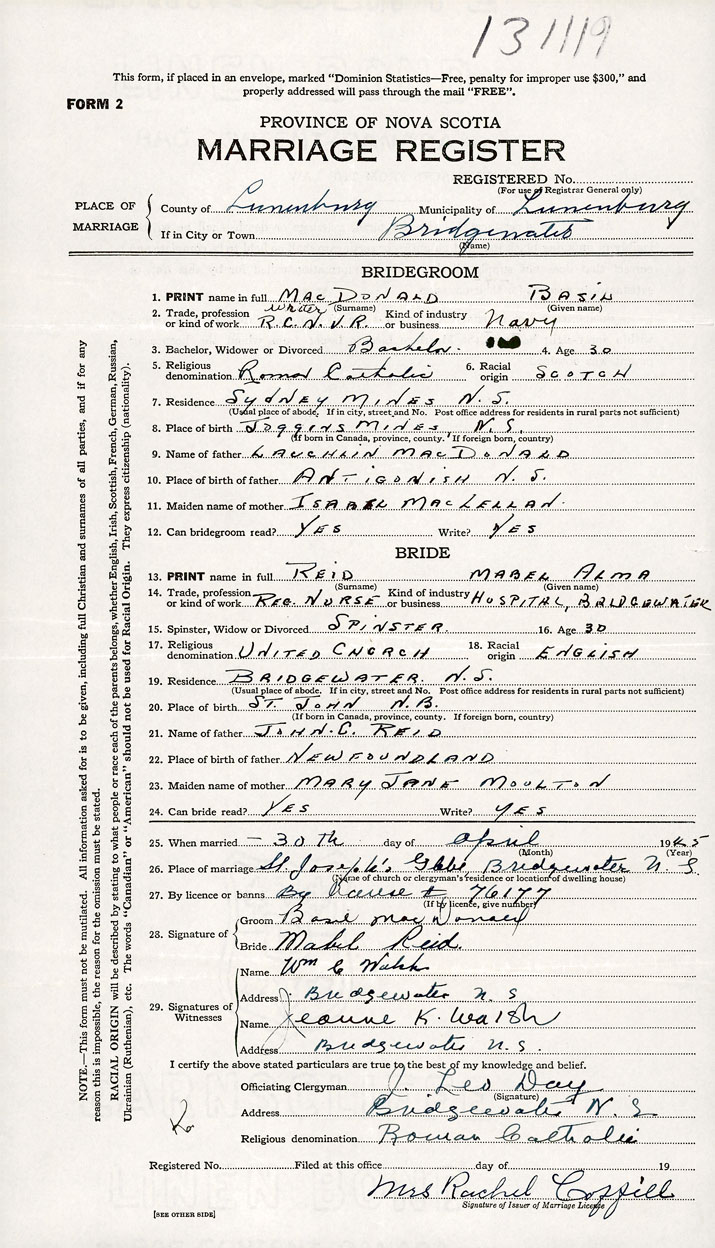 131119
This form, if placed in an envelope, marked "Dominion Statistics—Free, penalty for improper use $300," and
properly addressed will pass through the mail "FREE".
FORM 2
PROVINCE OF NOVA SCOTIA
MARRIAGE REGISTER
REGISTERED No.
(For use of Registrar General only)
PLACE OF MARRIAGE
County of Lunenburg Municipality of Lunenburg
If in City or Town Bridgewater
(Name)
BRIDEGROOM
1. PRINT name in full MacDonald Basil
(Surname) (Given name)
2. Trade, profession or kind of work Writer R.C.N.V.R. Kind of industry or business Navy
3. Bachelor, Widower or Divorced Bachelor. 4. Age 30
5. Religious denomination Roman Catholic 6. Racial origin SCOTCH
7. Residence SYDNEY MINES N.S.
(Usual place of abode. If in city, street and No. Post office address for residents in rural parts not sufficient)
8. Place of birth JOGGINS MINES, N.S.
(If born in Canada, province, county. If foreign born, country)
9. Name of father LAUCHLIN MACDONALD
10. Place of birth of father ANTIGONISH N.S.
11. Maiden name of mother ISABEL MACLELLAN.
12. Can bridegroom read? YES Write? YES
BRIDE
13. PRINT name in full REID MABEL ALMA
(Surname) (Given name)
14. Trade, profession or kind of work REG. NURSE Kind of industry or business HOSPITAL, BRIDGEWATER
15. Spinster, Widow or Divorced SPINSTER 16. Age 30
17. Religious denomination UNITED CHURCH 18. Racial origin ENGLISH
19. Residence BRIDGEWATER. N.S.
(Usual place of abode. If in city, street and No. Post office address for residents in rural parts not sufficient)
20. Place of birth ST. JOHN N.B.
(If born in Canada, province, county. If foreign born, country)
21. Name of father JOHN C. REID
22. Place of birth of father NEWFOUNDLAND
23. Maiden name of mother MARY JANE MOULTON
24. Can bride read? YES Write? YES
25. When married 30th day of April 1945
(Month) (Year)
26. Place of marriage St. Joseph's Glebe Bridgewater N.S.
(Name of church or clergyman's residence or location of dwelling house)
27. By licence or banns By # 76177
(If by licence, give number)
28. Signature of
Groom Basil MacDonald
Bride Mabel Reid.
29. Signatures of Witnesses
Name Wm C Walsh
Address Bridgewater N.S
Name Jeanne K. Walsh
Address Bridgewater N.S.
I certify the above stated particulars are true to the best of my knowledge and belief.
Officiating Clergyman J. Leo Day
(Signature)
Address Bridgewater N.S
Religious denomination Roman Catholic
Registered No. Filed at this office day of 19
Mrs Rachel Coffill
Signature of Issuer of Marriage License
[SEE OTHER SIDE]
NOTE.—This form must not be mutilated. All information asked for is to be given, including full Christian and surnames of all parties, and if for any
reason this is impossible, the reason for the omission must be stated.
RACIAL ORIGIN will be described by stating to what people or race each of the parents belongs, whether English, Irish, Scottish, French, German, Russian,
Ukrainian (Ruthenian), etc. The words "Canadian" or "American" should not be used for Racial Origin. They express citizenship (nationality).